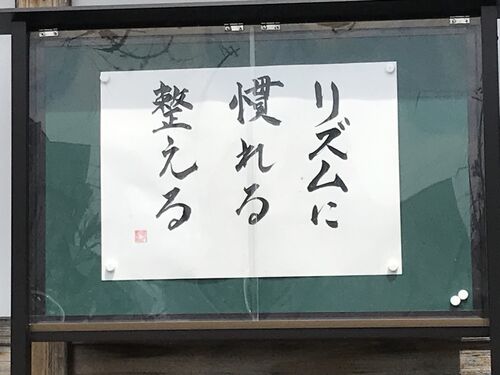 リズムに
慣れる
整える